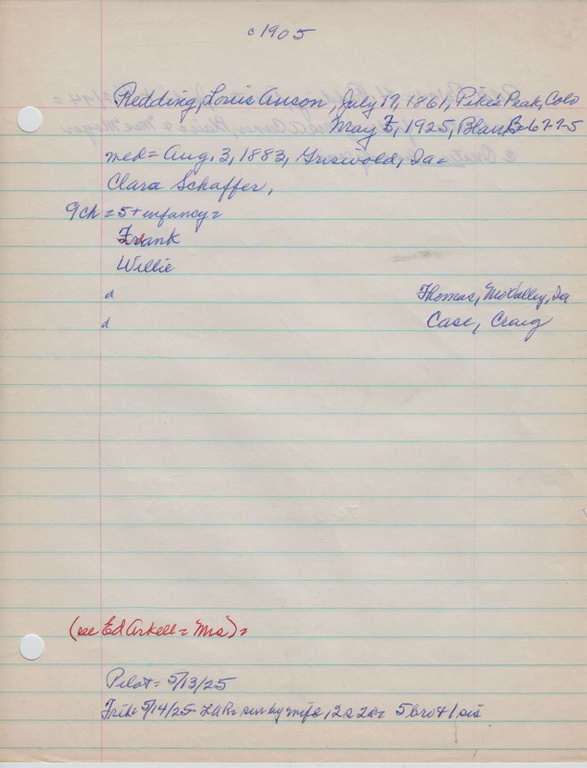 c 1905
Redding, Louis Anson, July 17, 1861, Pike's Peak, Colo
May 7, 1925, Blau B-67-7-5
med= Aug. 3, 1883, Griswold, Ia=
Clara Schaffer,
9ch = 5+ infancy=
Frank
Willie
d Thomas, Mo Valley, Ia
d Case, Craig
(see Ed Arkell = Mrs) =
Pilot= 5/13/25
Trib= 5/14/25= LAR= surv by wife, 2s 2d= 5 bro + 1 sis